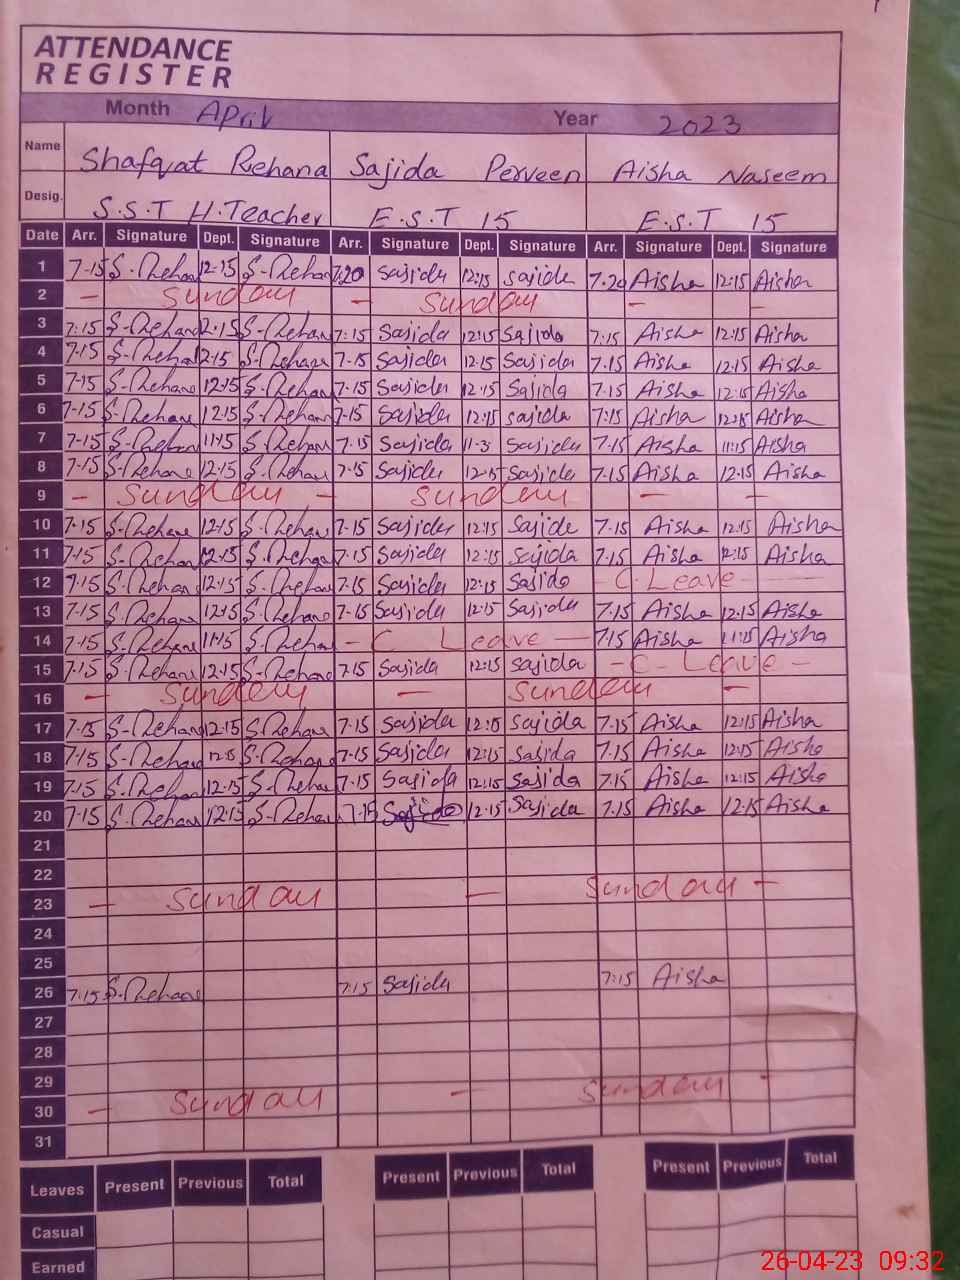 ATTENDANCE
REGISTER
Month April Year 2023
Name Shafqat Rehana Sajida Perveen Aisha Naseem
Desig. S.S.T H.Teacher E.S.T 15 E.S.T 15
Date Arr. Signature Dept. Signature Arr. Signature Dept. Signature Arr. Signature Dept. Signature
1 7-15 S-Rehana 12-15 S-Rehana 7.20 Sajida 12:15 Sajida 7.20 Aisha 12:15 Aisha
2 - Sunday - Sunday - -
3 7:15 S-Rehana 12.15 S-Rehana 7:15 Sajida 12:15 Sajida 7:15 Aisha 12.15 Aisha
4 7-15 S-Rehana 12.15 S-Rehana 7-15 Sajida 12.15 Sajida 7.15 Aisha 12.15 Aisha
5 7-15 S-Rehana 12.15 S-Rehana 7-15 Sajida 12.15 Sajida 7.15 Aisha 12:15 Aisha
6 7-15 S-Rehana 12.15 S-Rehana 7-15 Sajida 12:15 Sajida 7:15 Aisha 12:15 Aisha
7 7-15 S-Rehana 11-15 S-Rehana 7.15 Sajida 11-3 Sajida 7.15 Aisha 11:15 Aisha
8 7-15 S-Rehana 12-15 S-Rehana 7-15 Sajida 12.15 Sajida 7.15 Aisha 12.15 Aisha
9 - Sunday - Sunday - -
10 7-15 S-Rehana 12.15 S-Rehana 7-15 Sajida 12:15 Sajida 7.15 Aisha 12:15 Aisha
11 7-15 S-Rehana 12.15 S-Rehana 7-15 Sajida 12:15 Sajida 7.15 Aisha 12:15 Aisha
12 7-15 S-Rehana 12.15 S-Rehana 7-15 Sajida 12:15 Sajida - C. Leave -
13 7-15 S-Rehana 12.15 S-Rehana 7-15 Sajida 12.15 Sajida 7.15 Aisha 12.15 Aisha
14 7-15 S-Rehana 11-15 S-Rehana - C Leave - 7.15 Aisha 11:15 Aisha
15 7-15 S-Rehana 12.15 S-Rehana 7.15 Sajida 12:15 Sajida - C- Leave -
16 - Sunday - Sunday -
17 7-15 S-Rehana 12.15 S-Rehana 7.15 Sajida 12:15 Sajida 7.15 Aisha 12:15 Aisha
18 7-15 S-Rehana 12.15 S-Rehana 7-15 Sajida 12:15 Sajida 7.15 Aisha 12.15 Aisha
19 7-15 S-Rehana 12.15 S-Rehana 7.15 Sajida 12:15 Sajida 7.15 Aisha 12.15 Aisha
20 7-15 S-Rehana 12.15 S-Rehana 7-15 Sajida 12.15 Sajida 7.15 Aisha 12.15 Aisha
21
22
23 - Sunday - Sunday -
24
25
26 7.15 S-Rehana 7.15 Sajida 7:15 Aisha
27
28
29
30 - Sunday - Sunday -
31
Leaves Present Previous Total Present Previous Total Present Previous Total
Casual
Earned
26-04-23 09:32